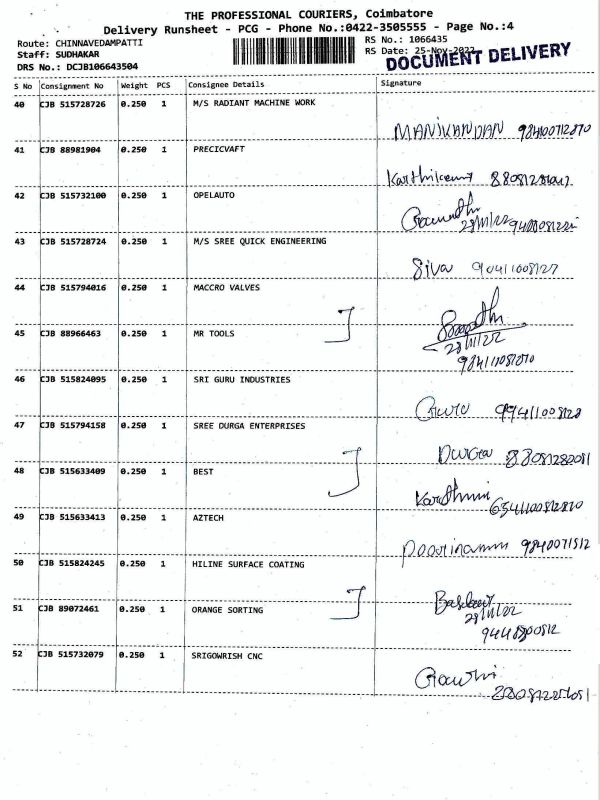 THE PROFESSIONAL COURIERS, Coimbatore
Delivery Runsheet - PCG - Phone No.:0422-3505555 - Page No.:4
Route: CHINNAVEDAMPATTI
RS No.: 1066435
Staff: SUDHAKAR
RS Date: 25-Nov-2022
DRS No.: DCJB106643504
DOCUMENT DELIVERY
S No Consignment No Weight PCS Consignee Details Signature
40 CJB 515728726 0.250 1 M/S RADIANT MACHINE WORK
MANIKANDAN
41 CJB 88981904 0.250 1 PRECICVAFT
42 CJB 515732100 0.250 1 OPELAUTO
28/11/22
43 CJB 515728724 0.250 1 M/S SREE QUICK ENGINEERING
Siva
44 CJB 515794016 0.250 1 MACCRO VALVES
45 CJB 88966463 0.250 1 MR TOOLS
28/11/22
46 CJB 515824095 0.250 1 SRI GURU INDUSTRIES
47 CJB 515794158 0.250 1 SREE DURGA ENTERPRISES
Durga
48 CJB 515633409 0.250 1 BEST
49 CJB 515633413 0.250 1 AZTECH
50 CJB 515824245 0.250 1 HILINE SURFACE COATING
51 CJB 89072461 0.250 1 ORANGE SORTING
28/11/22
52 CJB 515732079 0.250 1 SRIGOWRISH CNC